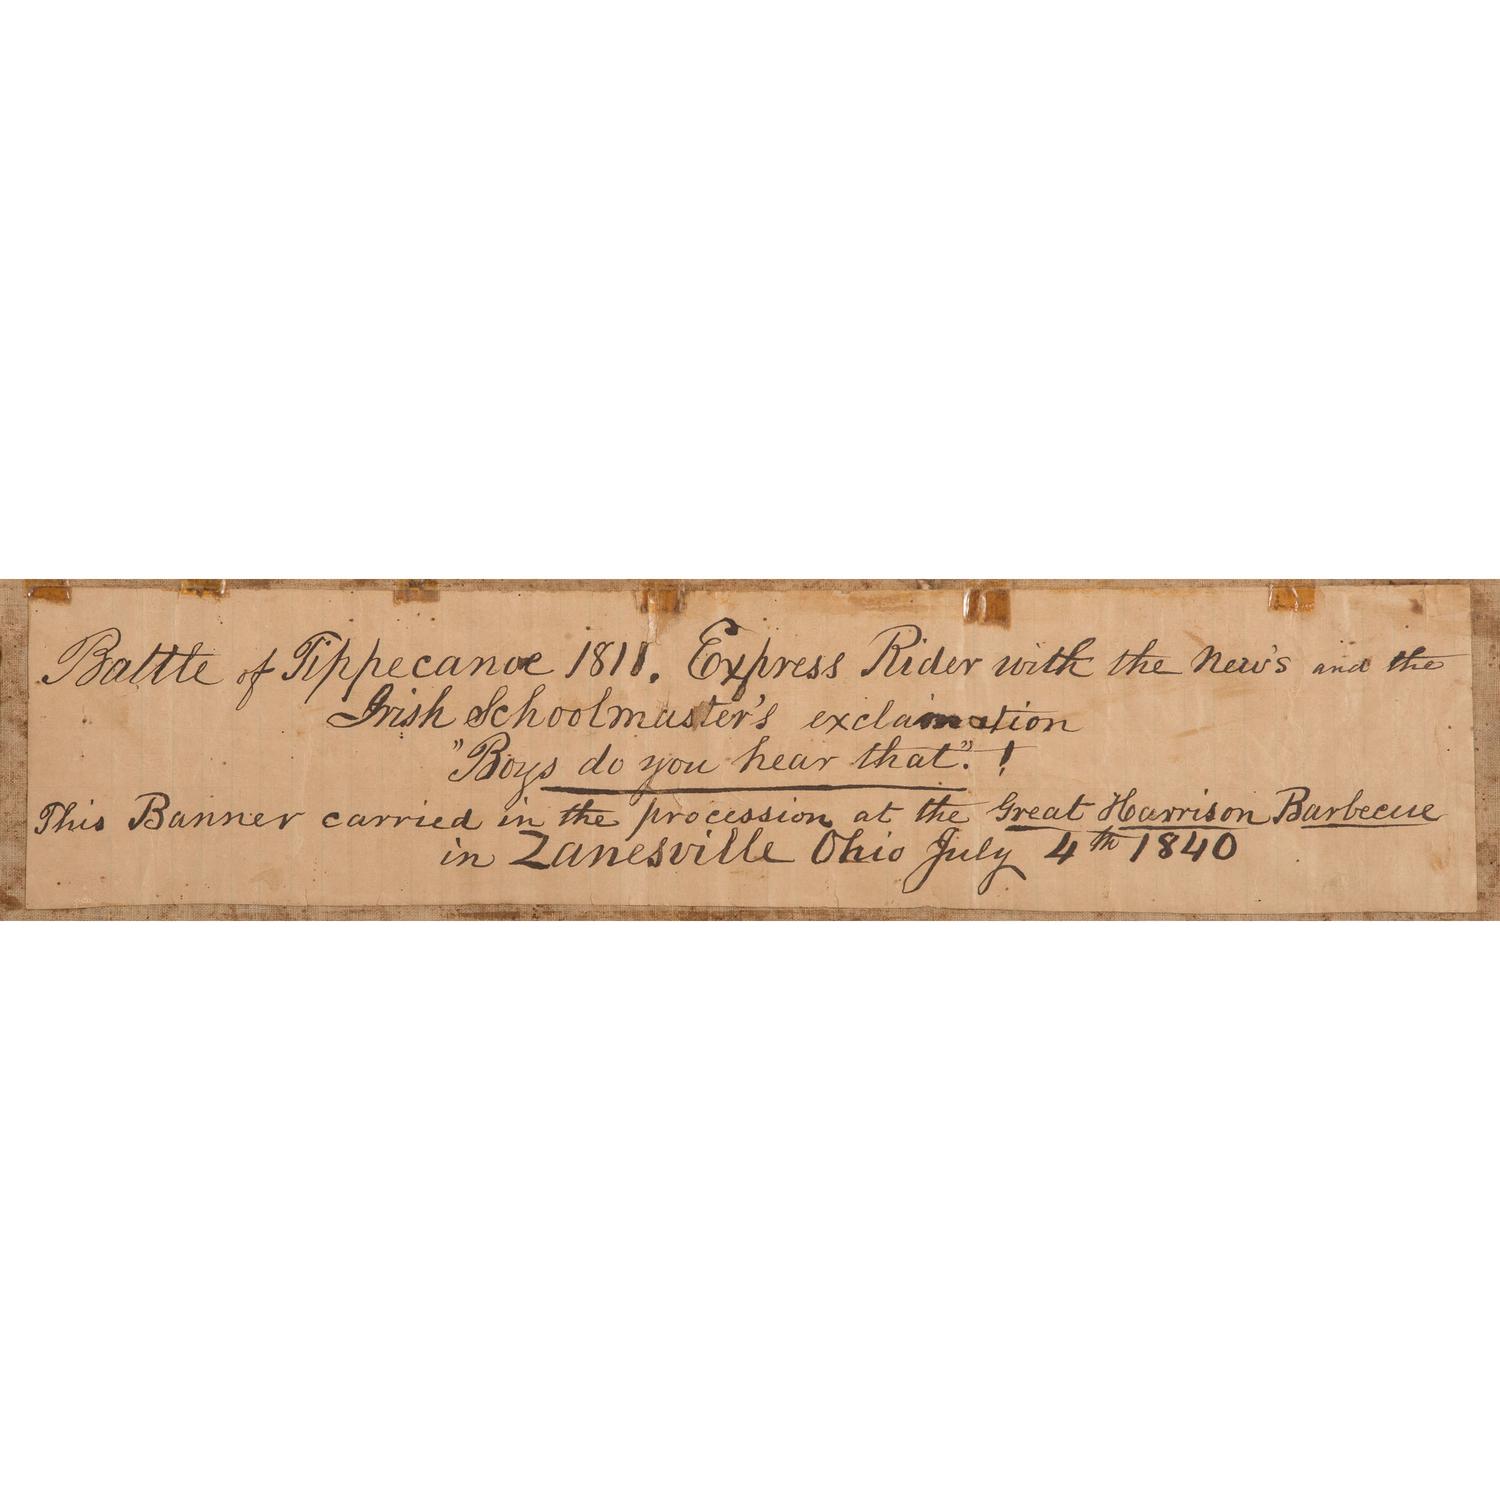 Battle of Tippecanoe 1811. Express Rider with the New's and the
Irish Schoolmaster's exclamation
"Boys do you hear that". !
This Banner carried in the procession at the Great Harrison Barbecue
in Zanesville Ohio July 4th 1840